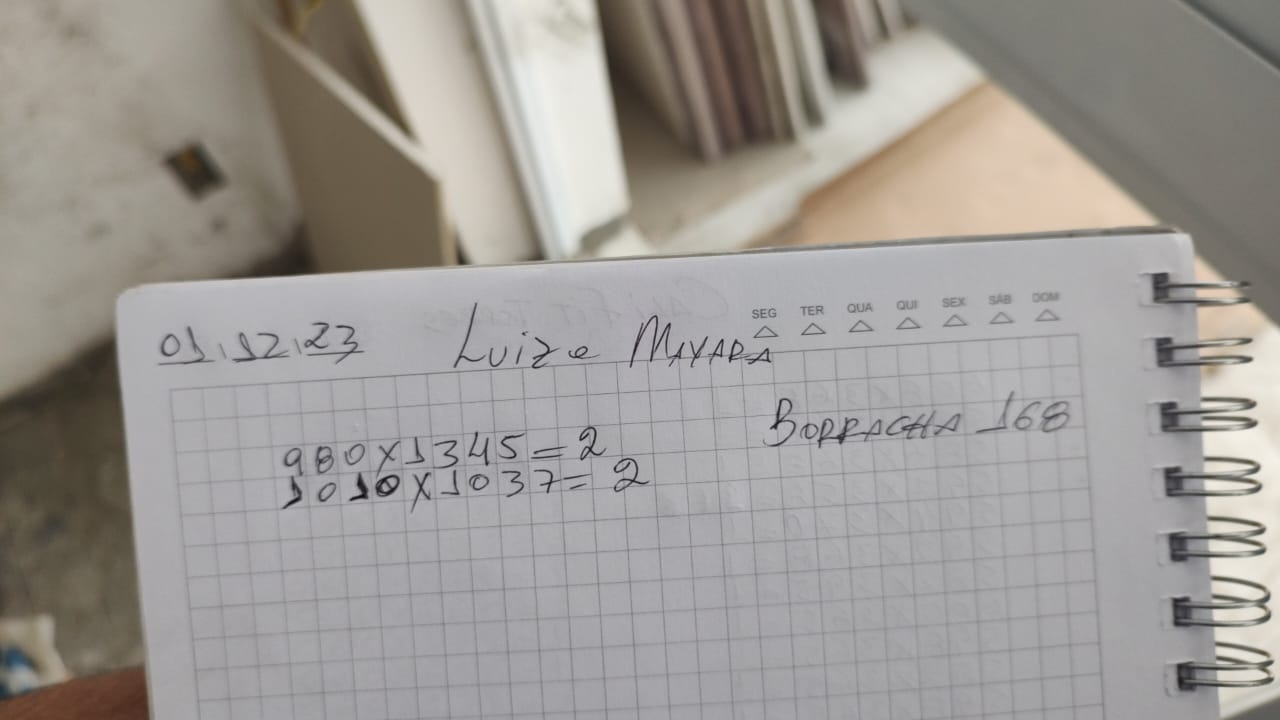 SEG TER QUA QUI SEX SÁB DOM
01.12.23 Luiz e MAYARA
BORRACHA 168
980X1345=2
1010X1037=2